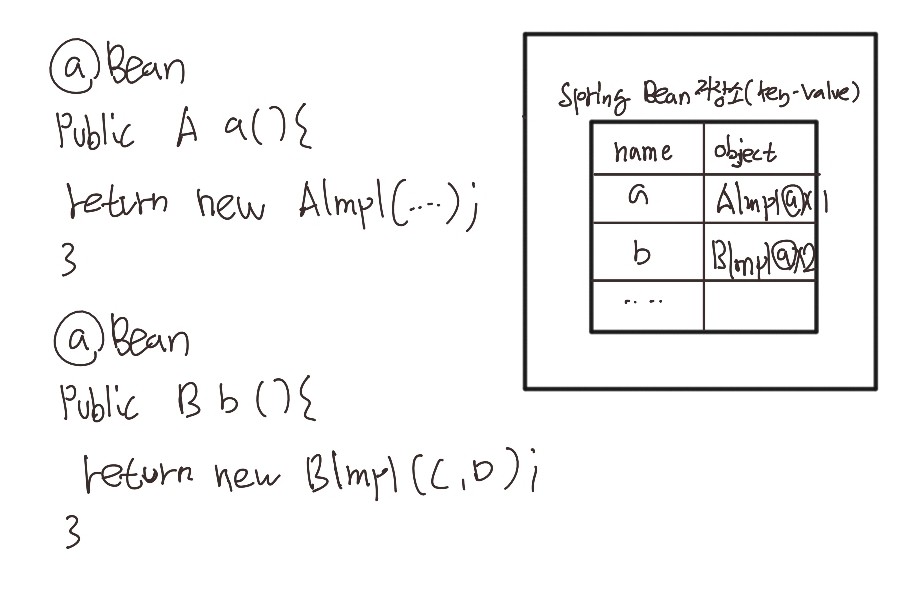 @Bean
Public A a(){
return new AImpl(....);
}
@Bean
Public B b(){
return new BImpl(C,D);
}
Spring Bean 저장소(key-value)
name object
a AImpl@x1
b BImpl@x2
.. ..